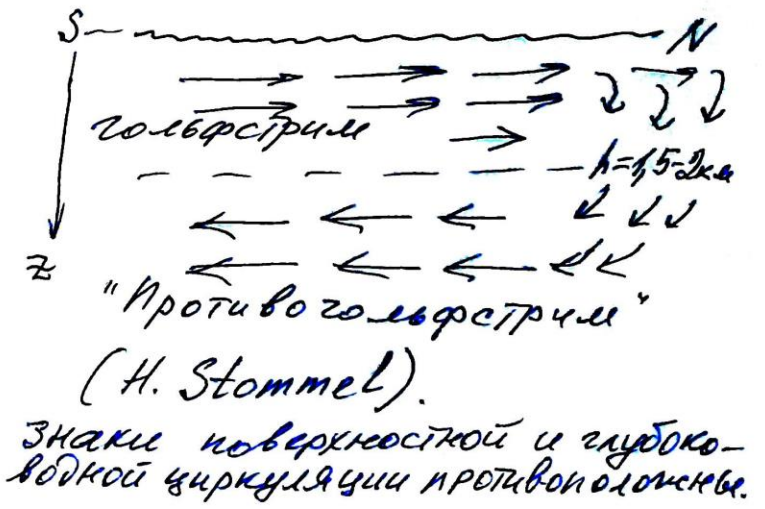 S N
гольфстрим
h=1,5-2км
z
"Противогольфстрим"
(H. Stommel).
Знаки поверхностной и глубоко-
водной циркуляции противоположны.